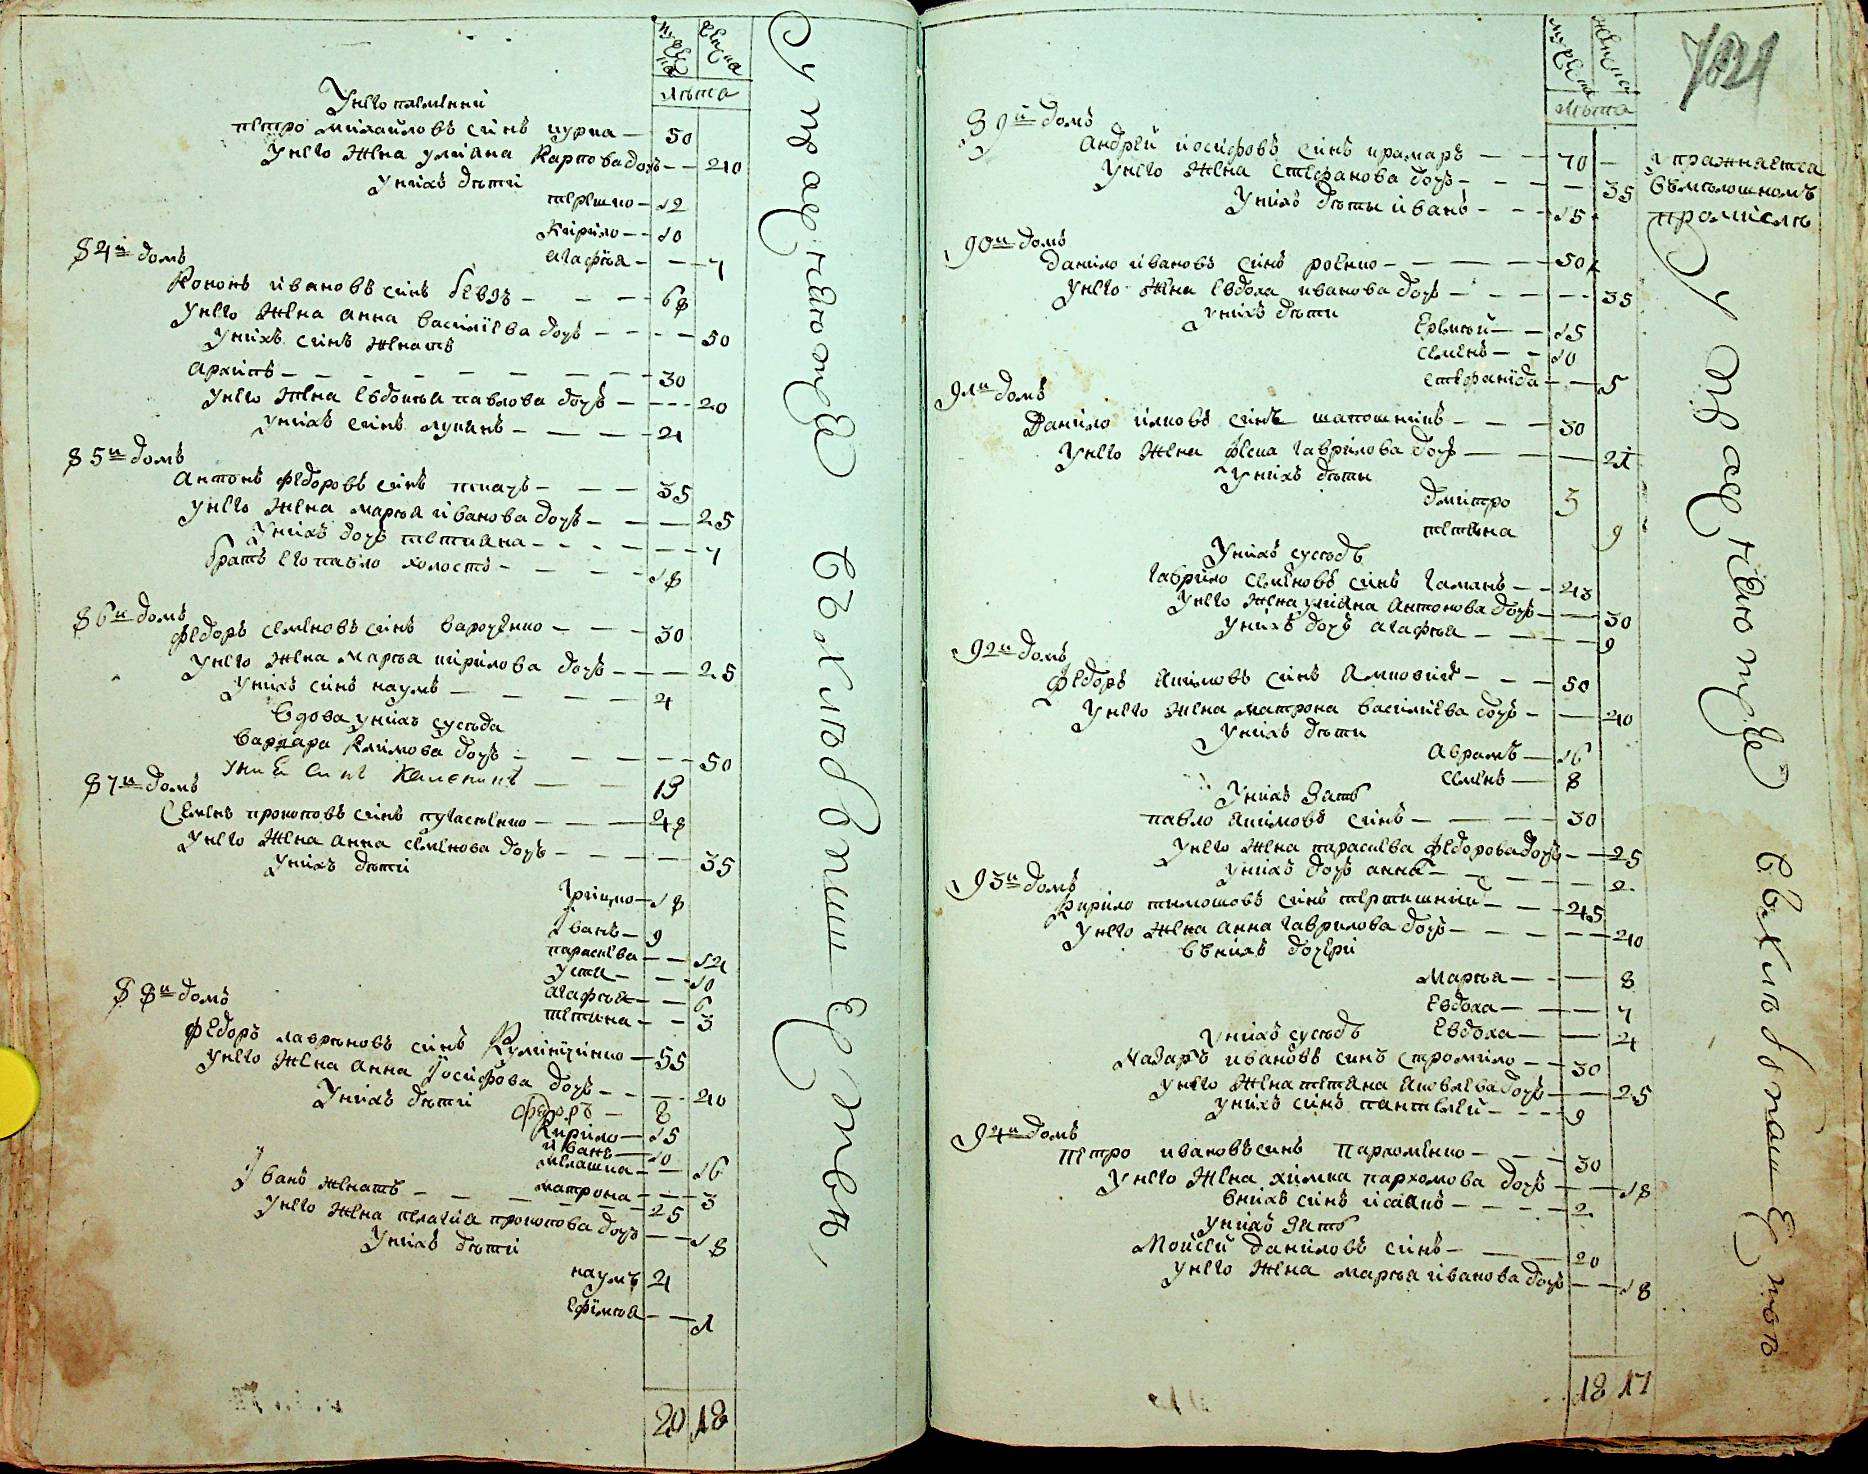 мужеска
женска
лѣта
Унего племенній
петро михайловъ синъ цурка 50
Унего Жена улияна Карпова дочь 40
Унихъ дѣти
терешко 12
Кирило 10
агафія 7
84й домъ
Кононъ ивановъ синъ 68
Унего Жена анна василіева дочь 50
Унихъ синъ женатъ
архипъ 30
Унего Жена Евдокия павлова дочь 20
Унихъ синъ лукянъ 4
85й домъ
антонъ федоровъ синъ ткачъ 35
Унего Жена марфа иванова дочь 25
Унихъ дочь тетяна 7
братъ его павло холостъ 18
86й домъ
федоръ семеновъ синъ 30
Унего Жена Марфа кирилова дочь 25
Унихъ синъ наумъ 4
Вдова унихъ сусѣда
варвара Климова дочь 50
Унии синъ 13
87й домъ
Семенъ прокоповъ синъ 48
Унего Жена анна семенова дочь 35
Унихъ дѣти
грицко 18
Иванъ 9
парасиева 14
устя 10
агафия 6
тетяна 3
88й домъ
федоръ лавриновъ синъ 55
Унего Жена анна Йосифова дочь 40
Унихъ дѣти федоръ 8
Кирило 15
иванъ 10
мелашка 16
матрона 3
Иванъ женатъ 25
Унего Жена пелагия прокопова дочь 18
Унихъ дѣти
наумъ 4
ефимия 1
20 18
Упражняются
въ хлѣбопашестве,
мужеска
женска
лѣта
89й домъ
андрей йосифовъ синъ крамаръ 70
Унего Жена Стефанова дочь 35
Унихъ дѣти иванъ 15
упражняется
въ мѣлошномъ
промислѣ
90й домъ
данило ивановъ синъ 50
Унего Жена Евдоха иванова дочь 35
Унихъ дѣти
Еремѣй 15
семенъ 10
стефанида 5
91й домъ
Данило илковъ синъ шапошникъ 30
Унего Жена феска гаврилова дочь 21
Унихъ дѣти
дмитро 3
тетяна 9
Унихъ сусѣдъ
гаврило семеновъ синъ гаманъ 43
Унего Жена улияна антонова дочь 30
Унихъ дочь агафия 9
92й домъ
федоръ якимовъ синъ 50
Унего Жена матрона василиева дочь 40
Унихъ дѣти
аврамъ 16
семенъ 8
Унихъ Зять
павло якимовъ синъ 30
Унего Жена парасиева федорова дочь 25
Унихъ дочь анна 2
93й домъ
Кирило тимошовъ синъ 45
Унего Жена анна гаврилова дочь 40
Внихъ дочери
Марфа 8
Евдоха 7
Евдоха 4
Унихъ сусѣдъ
Назаръ ивановъ синъ стромило 30
Унего Жена тетяна яковлева дочь 25
Унихъ синъ пантелей 9
94й домъ
петро ивановъ синъ пархоменко 30
Унего Жена химка пархомова дочь 18
внихъ синъ исаакъ 2
Унихъ Зять
Мойсей даниловъ синъ 20
Унего Жена марфа иванова дочь 18
18 17
Упражняются
въ хлѣбопашестве